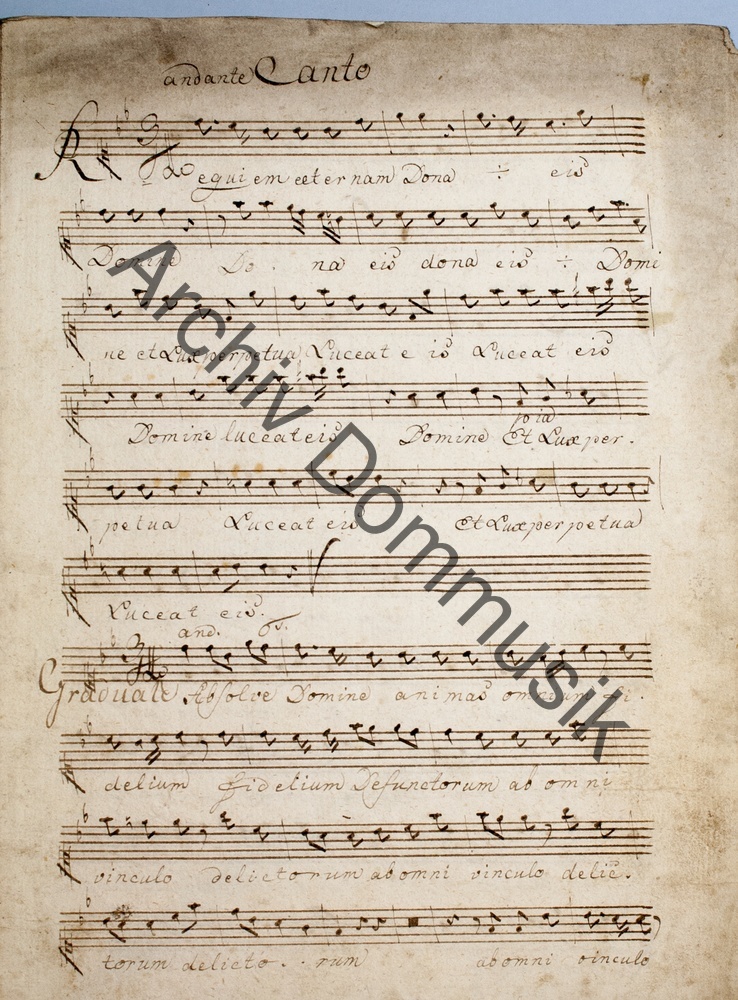 andante Canto
Requiem eeternam Dona ÷ eis
Domine Do . na eis dona eis ÷ Domi
ne et Lux perpetua Luceat e is Luceat eis
Domine luceat eis Domine Et Lux per .
petua Luceat eis Et Lux perpetua
Luceat eis.
and.
Graduale Absolve Domine animas omnium fi .
delium fidelium Defunctorum ab omni
vinculo delictorum ab omni vinculo delic .
torum delicto . . rum ab omni vinculo
Archiv Dommusik